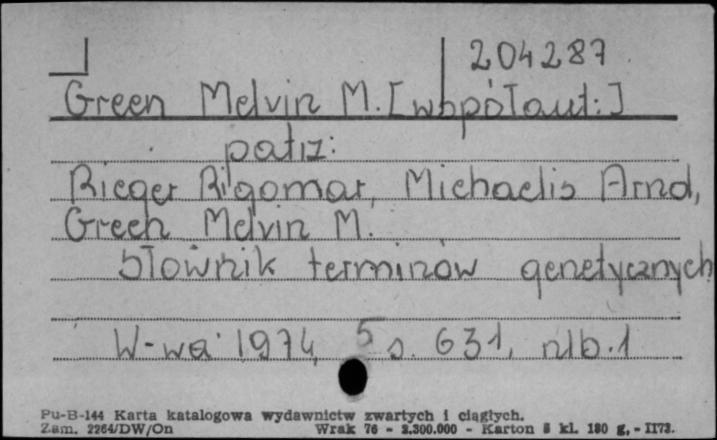 204287
Green Melvin M. [współaut:]
patrz:
Rieger Rigomar, Michaelis Arnd,
Green Melvin M.
Słownik terminów genetycznych
W-wa 1974, s. 631, nlb.1
Pu-B-144 Karta katalogowa wydawnictw zwartych i ciągłych.
Zam. 2264/DW/On Wrak 76 - 2.300.000 - Karton 8 kl. 180 g, - II73.